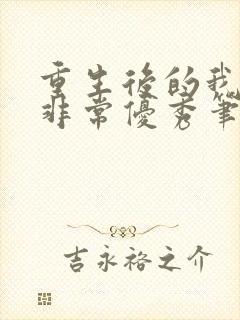 重生後的我
非常優秀筆
吉永裕之介